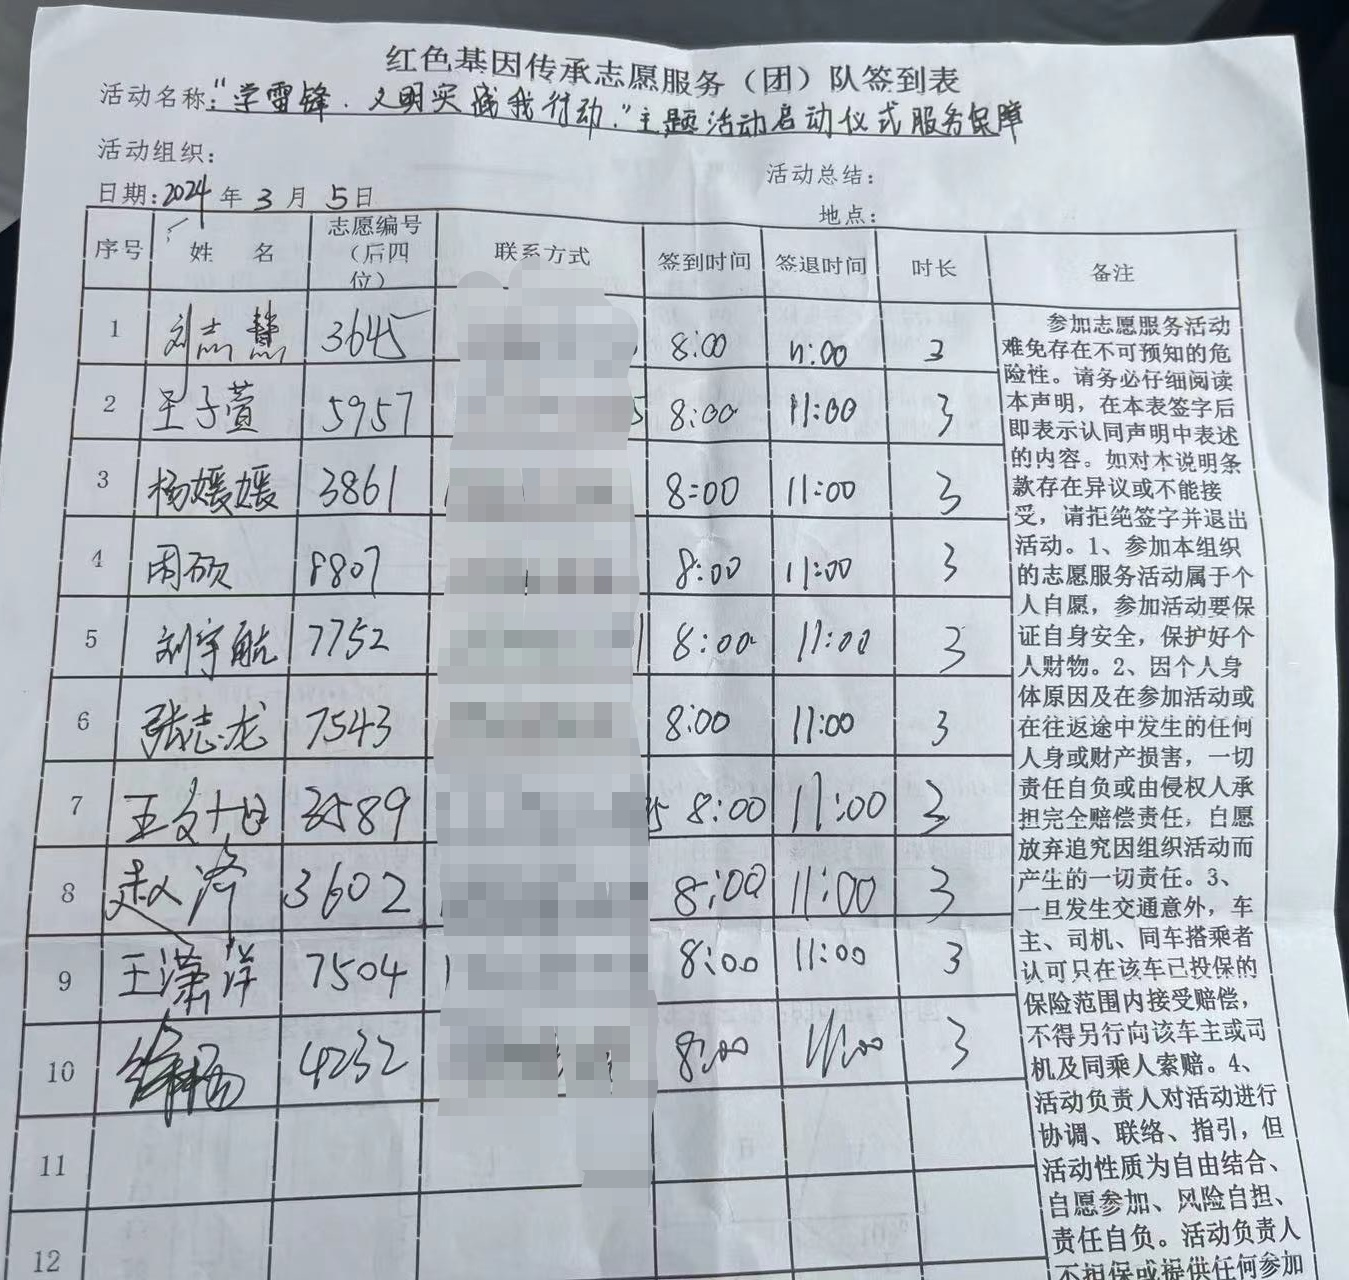 红色基因传承志愿服务（团）队签到表
活动名称："学雷锋.文明实践我行动."主题活动启动仪式服务保障
活动组织：
活动总结：
日期:2024年3月5日
地点：
序号 姓 名 志愿编号（后四位） 联系方式 签到时间 签退时间 时长 备注
1 刘志慧 3645 8:00 11:00 3
2 王子萱 5957 8:00 11:00 3
3 杨媛媛 3861 8:00 11:00 3
4 周硕 8807 8:00 11:00 3
5 刘宇航 7752 8:00 11:00 3
6 张志龙 7543 8:00 11:00 3
7 3589 8:00 11:00 3
8 赵 3602 8:00 11:00 3
9 王潇洋 7504 8:00 11:00 3
10 4232 8:00 11:00 3
11
12
参加志愿服务活动
难免存在不可预知的危
险性。请务必仔细阅读
本声明，在本表签字后
即表示认同声明中表述
的内容。如对本说明条
款存在异议或不能接
受，请拒绝签字并退出
活动。1、参加本组织
的志愿服务活动属于个
人自愿，参加活动要保
证自身安全，保护好个
人财物。2、因个人身
体原因及在参加活动或
在往返途中发生的任何
人身或财产损害，一切
责任自负或由侵权人承
担完全赔偿责任，自愿
放弃追究因组织活动而
产生的一切责任。3、
一旦发生交通意外，车
主、司机、同车搭乘者
认可只在该车已投保的
保险范围内接受赔偿，
不得另行向该车主或司
机及同乘人索赔。4、
活动负责人对活动进行
协调、联络、指引，但
活动性质为自由结合、
自愿参加、风险自担、
责任自负。活动负责人
不担保或提供任何参加